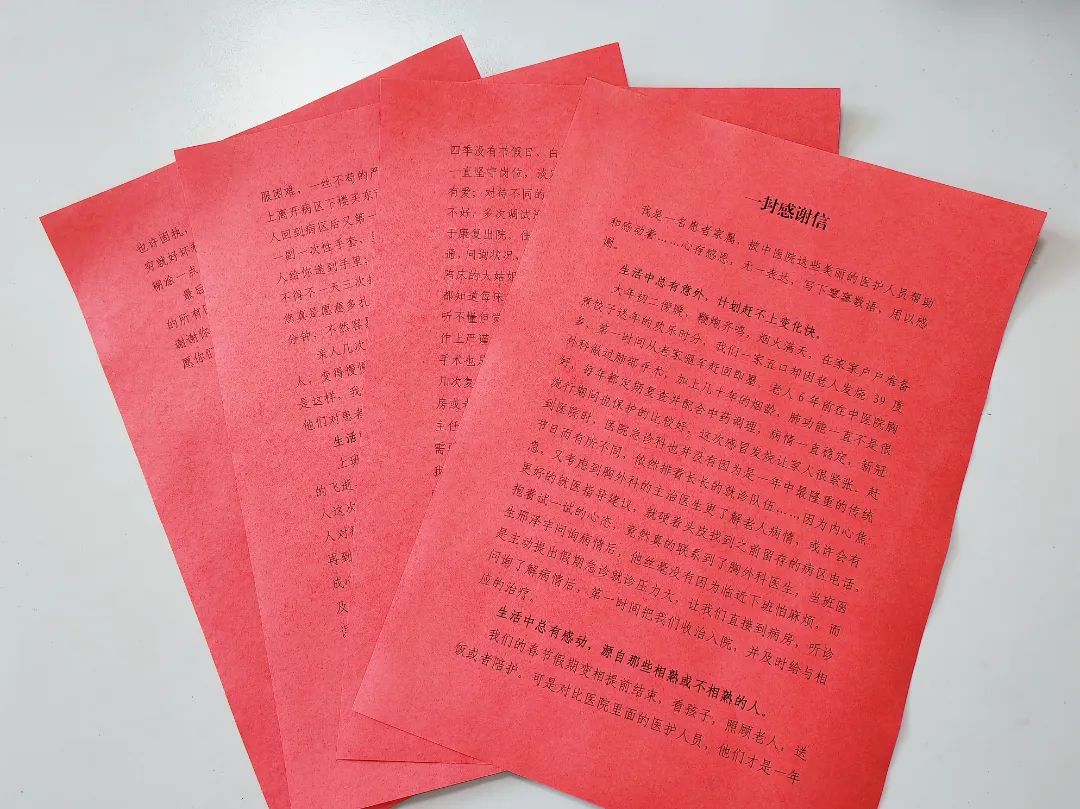 一封感谢信
我是一名患者家属，被中医院这些美丽的医护人员帮助
和感动着……心存感恩，无一表达，写下寥寥数语，用以感
谢。
生活中总有意外，计划赶不上变化快。
大年初二傍晚，鞭炮齐鸣，烟火满天，在家家户户准备
煮饺子送年的欢乐时分，我们一家五口却因老人发烧 39 度
多，第一时间从老家驱车赶回即墨。老人 6 年前在中医院胸
外科做过肺部手术，加上几十年的烟龄，肺功能一直不是很
好，每年都定期复查并配合中药调理，病情一直稳定，新冠
流行期间也保护的比较好，这次感冒发烧让家人很紧张。赶
到医院时，医院急诊科也并没有因为是一年中最隆重的传统
节日而有所不同，依然排着长长的就诊队伍……因为内心焦
急，又考虑到胸外科的主治医生更了解老人病情，或许会有
更好的就医指导建议，就硬着头皮找到之前留存的病区电话，
抱着试一试的心态，竟然真的联系到了胸外科医生，当班医
生邢泽宇问询病情后，他丝毫没有因为临近下班怕麻烦，而
是主动提出假期急诊就诊压力大，让我们直接到病房，听诊
问询了解病情后，第一时间把我们收治入院，并及时给与相
应的治疗。
生活中总有感动，源自那些相熟或不相熟的人。
我们的春节假期变相提前结束，看孩子，照顾老人，送
饭或者陪护。可是对比医院里面的医护人员，他们才是一年
四季没有节假日，白
一直坚守岗位，淡
有爱；对待不同的
不好，多次调试
于康复出院。住
通，问询状况，
临床的大姑姐
都知道每床
听不懂但
作上严谨
手术也
几次复
房或
主任
需
我
服困难，一丝不苟的严
上离开病区下楼买东
人回到病区后又第一
一副一次性手套，
人给你递到手里；
不得不一天三次
燕真是愿意多扎
分钟，不然容易
亲人几次
人，变得慢
是这样，我
他们对患者
生活
上班
的飞逝
人这次
人对
再到
成
及
也许固执，
穷就好坏
糊涂一点
最后
的所有
谢谢你
愿你们